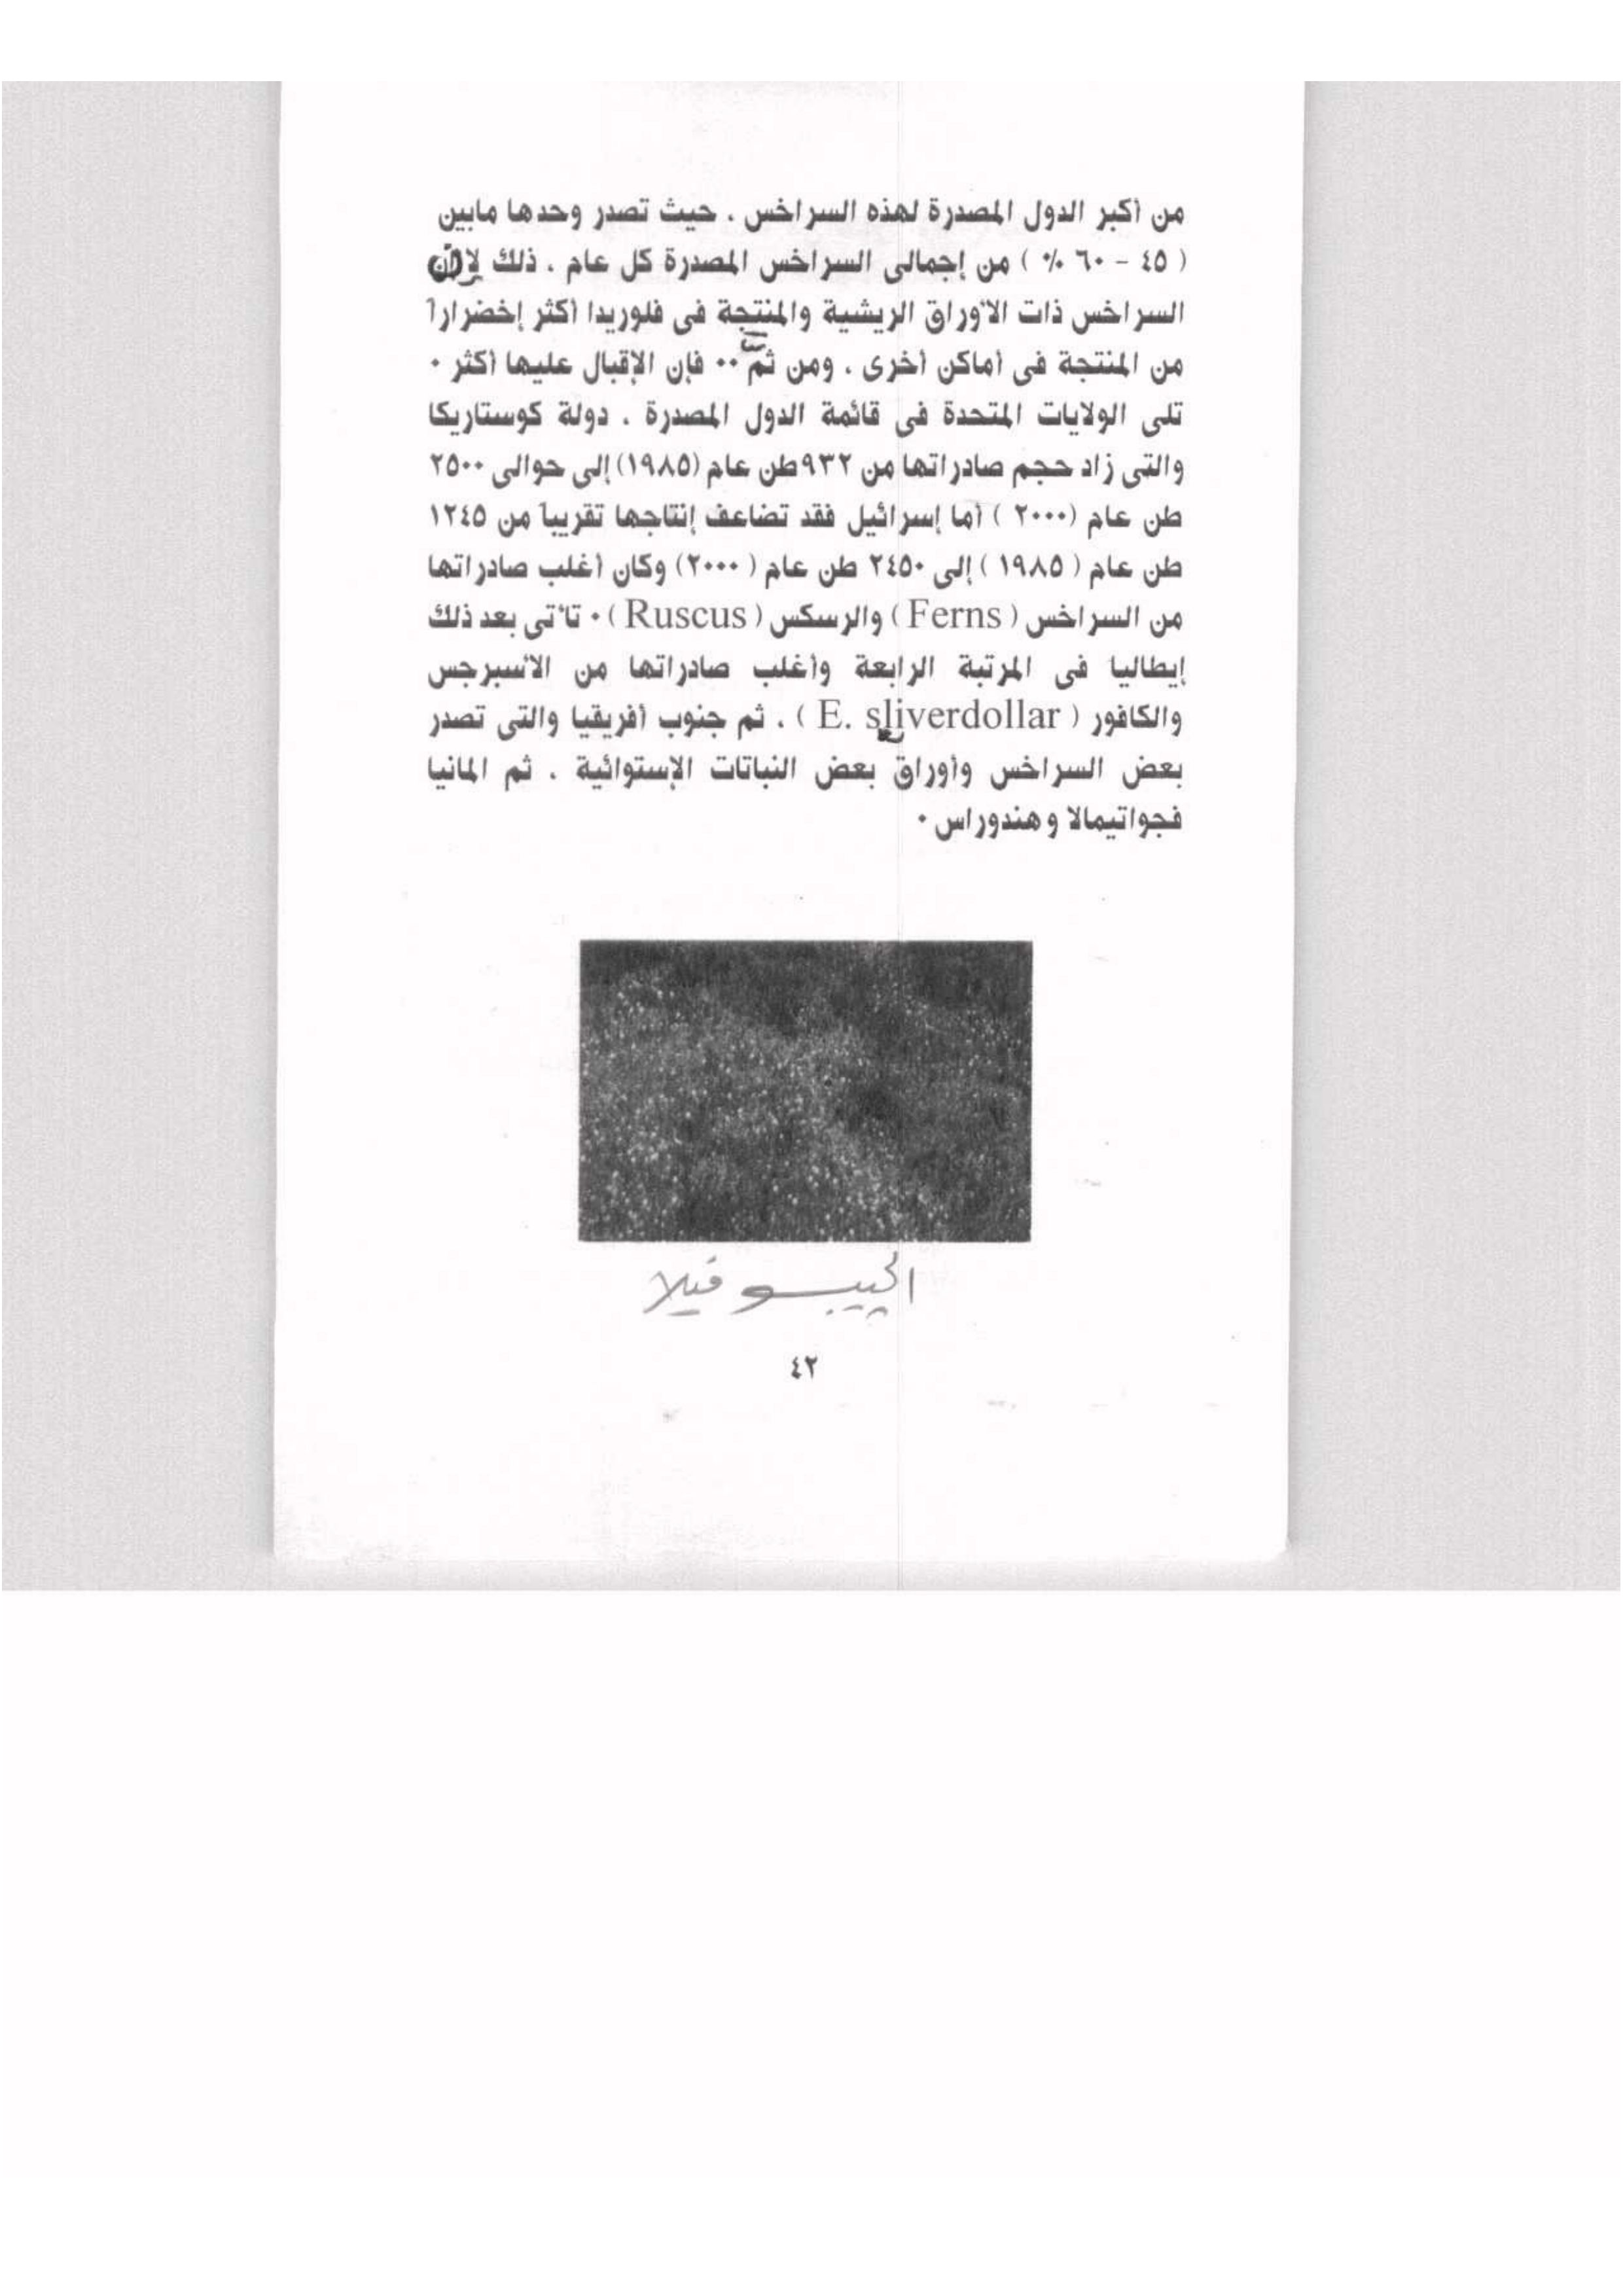 من أكبر الدول المصدرة لهذه السراخس ، حيث تصدر وحدها مابين
( ٤٥ - ٦٠ % ) من إجمالى السراخس المصدرة كل عام ، ذلك لأن
السراخس ذات الأوراق الريشية والمنتجة فى فلوريدا أكثر إخضراراً
من المنتجة فى أماكن أخرى ، ومن ثم ٠٠ فإن الإقبال عليها أكثر ٠
تلى الولايات المتحدة فى قائمة الدول المصدرة ، دولة كوستاريكا
والتى زاد حجم صادراتها من ٩٣٢ طن عام (١٩٨٥) إلى حوالى ٢٥٠٠
طن عام (٢٠٠٠ ) أما إسرائيل فقد تضاعف إنتاجها تقريباً من ١٢٤٥
طن عام ( ١٩٨٥ ) إلى ٢٤٥٠ طن عام ( ٢٠٠٠) وكان أغلب صادراتها
من السراخس ( Ferns ) والرسكس ( Ruscus ) ٠ تأتى بعد ذلك
إيطاليا فى المرتبة الرابعة وأغلب صادراتها من الأسبرجس
والكافور ( E. sliverdollar ) ، ثم جنوب أفريقيا والتى تصدر
بعض السراخس وأوراق بعض النباتات الإستوائية ، ثم المانيا
فجواتيمالا وهندوراس ٠
الجيبسوفيلا
٤٢